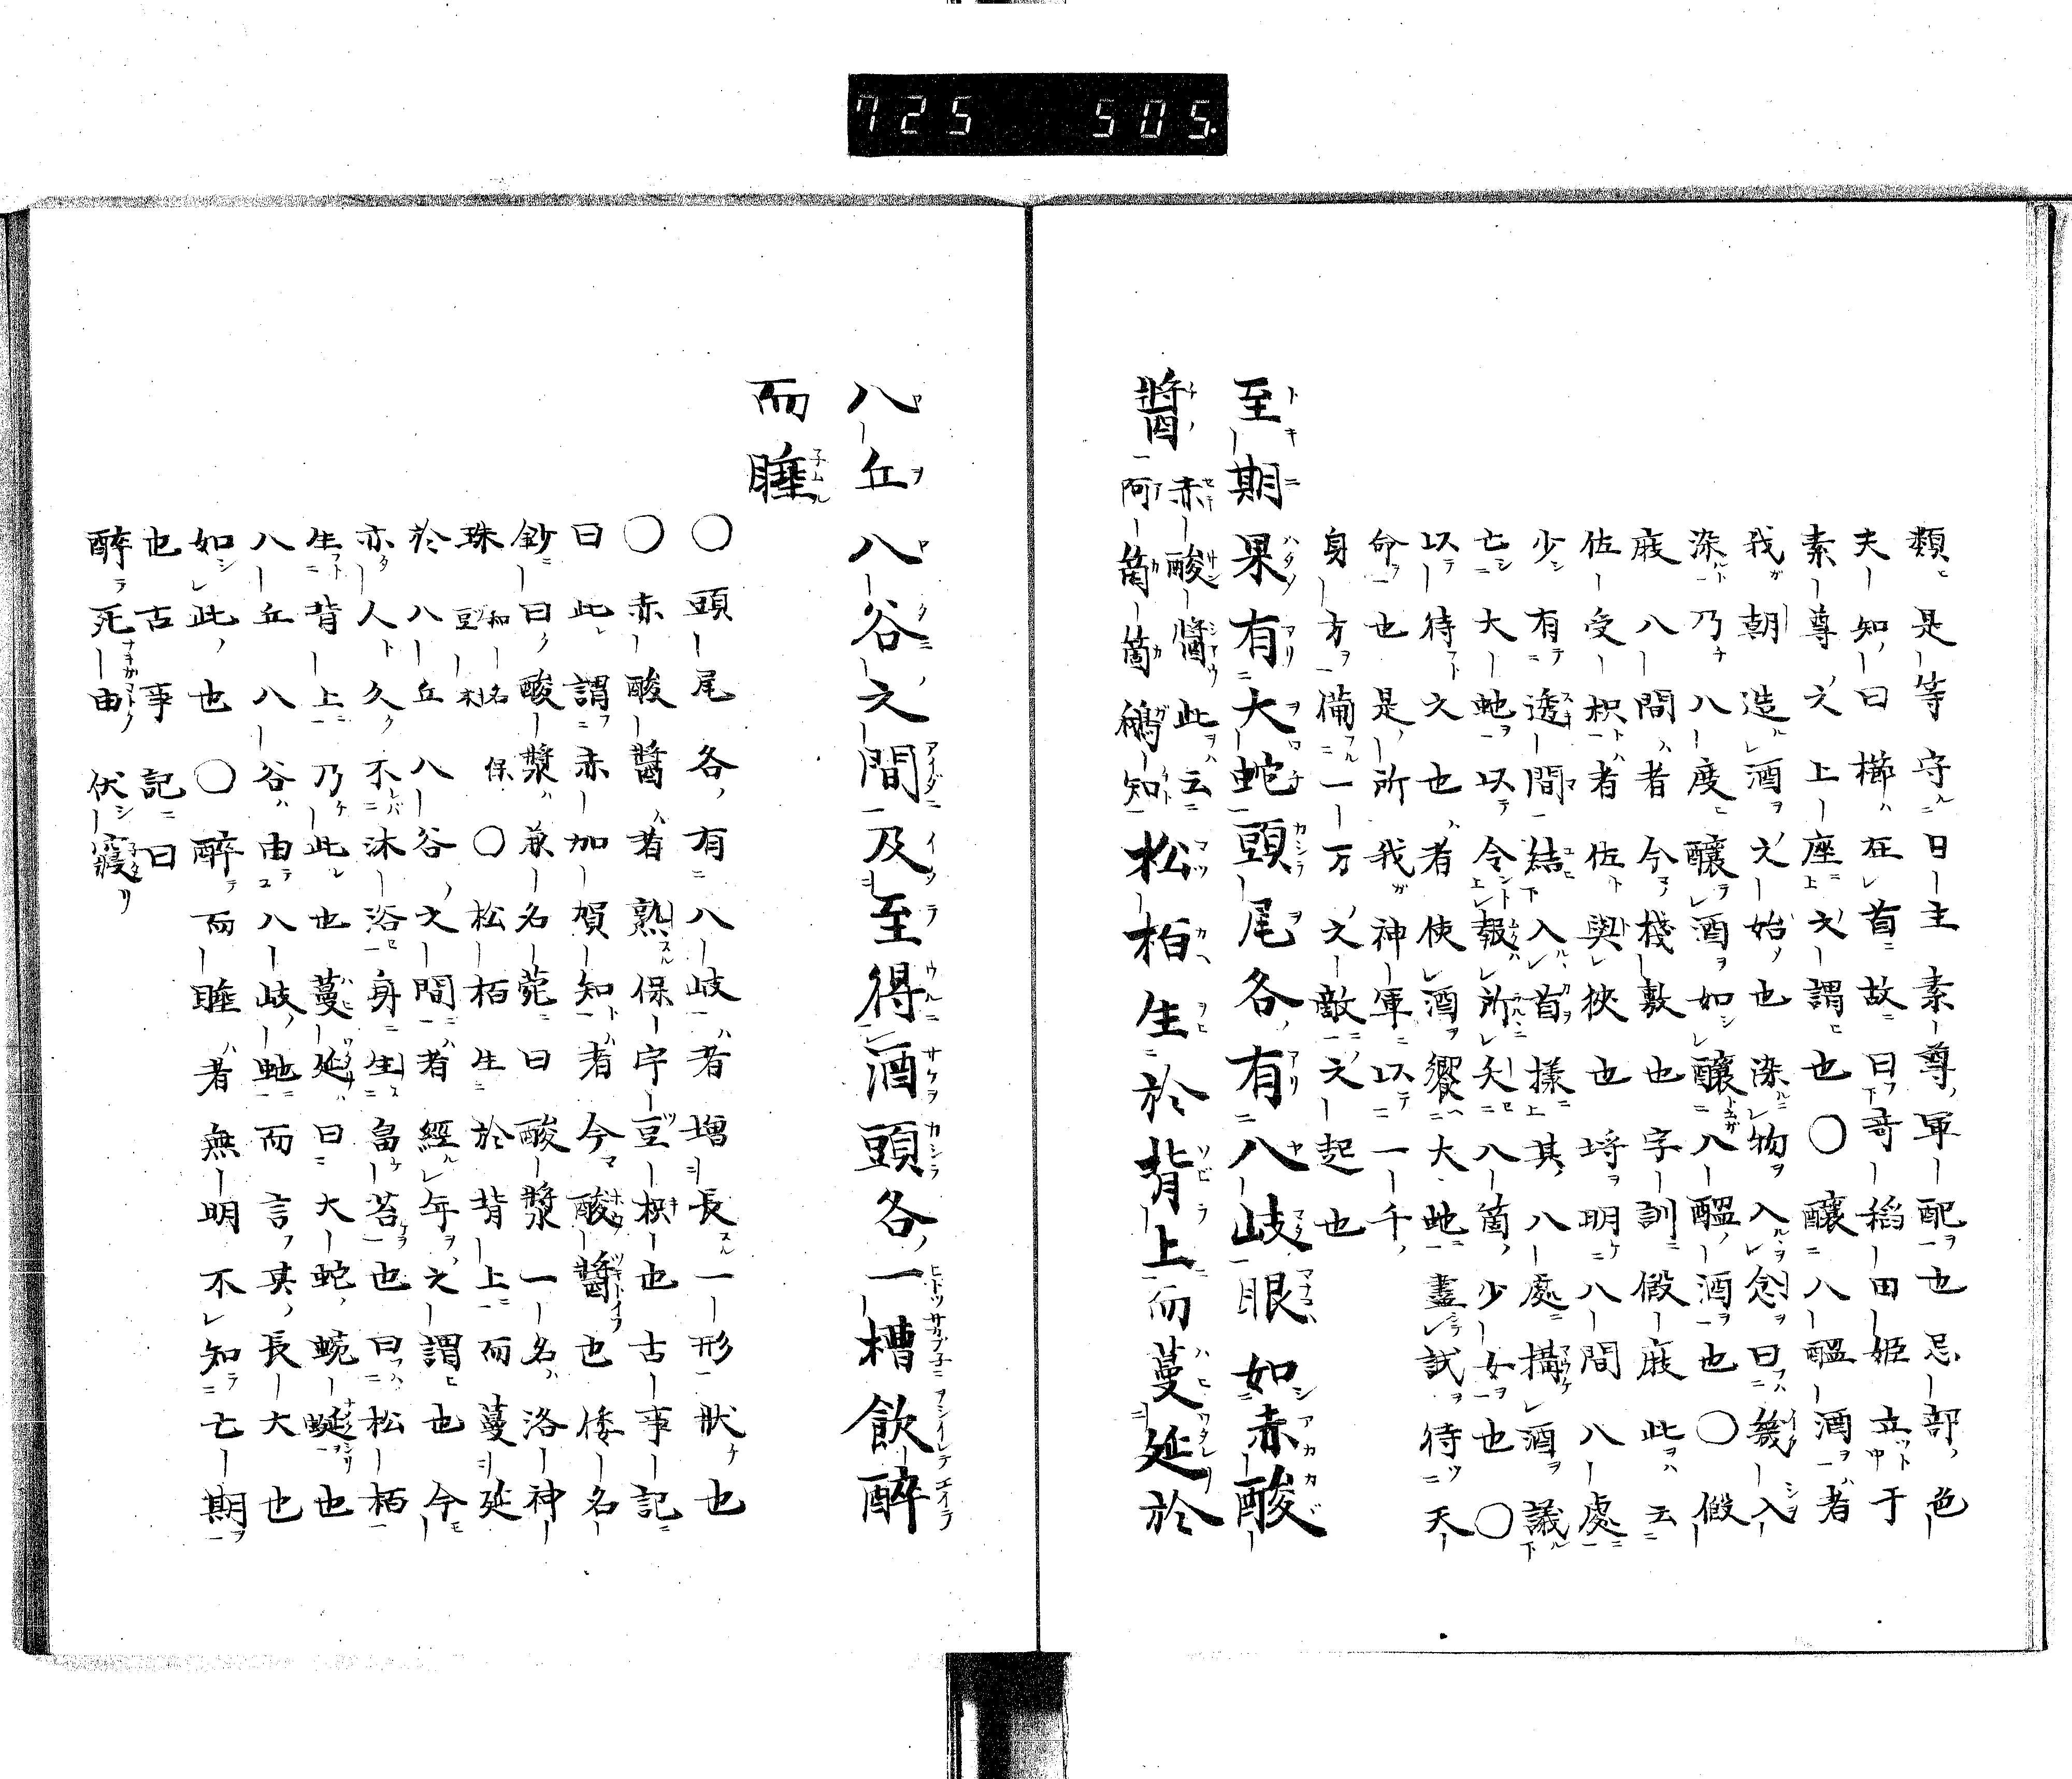 725 505.
類是等守日主素尊軍配也忌部色
夫知曰櫛在首故曰哥稻田姫立于
素尊之上座之謂也〇釀八醞酒者
我朝造酒之始也染物入念曰幾入
染乃八度釀酒如釀八醞酒也〇假
庪八間者今棧敷也字訓假庪此云
佐受枳者佐與挾也埓明八間八處
少有透間結入首樣其八處搆酒議
亡大虵以令報所夭八箇少女也〇
以待之也者使酒饗大虵盡試待天
命也是所我神軍以一千
身方備一万之敵之起也
至期果有大蛇頭尾各有八岐眼如赤酸
醬赤酸醬此云阿箇箇鵮知松柏生於背上而蔓延於
八丘八谷之間及至得酒頭各一槽飲醉
而睡
〇頭尾各有八岐者増長一形狀也
〇赤酸醬者熟保宇豆枳也古事記
曰此謂赤加賀知者今酸醬也倭名
鈔曰酸漿兼名苑曰酸漿一名洛神
珠和名保豆木〇松柏生於背上而蔓延
於八丘八谷之間者經年之謂也今
亦人久不沐浴身生畐苔也曰松柏
生背上乃此也蔓延曰大蛇蜿蜒也
八丘八谷由八岐虵而言其長大也
如此也〇醉而睡者無明不知亡期
也古事記曰
醉死由伏寢